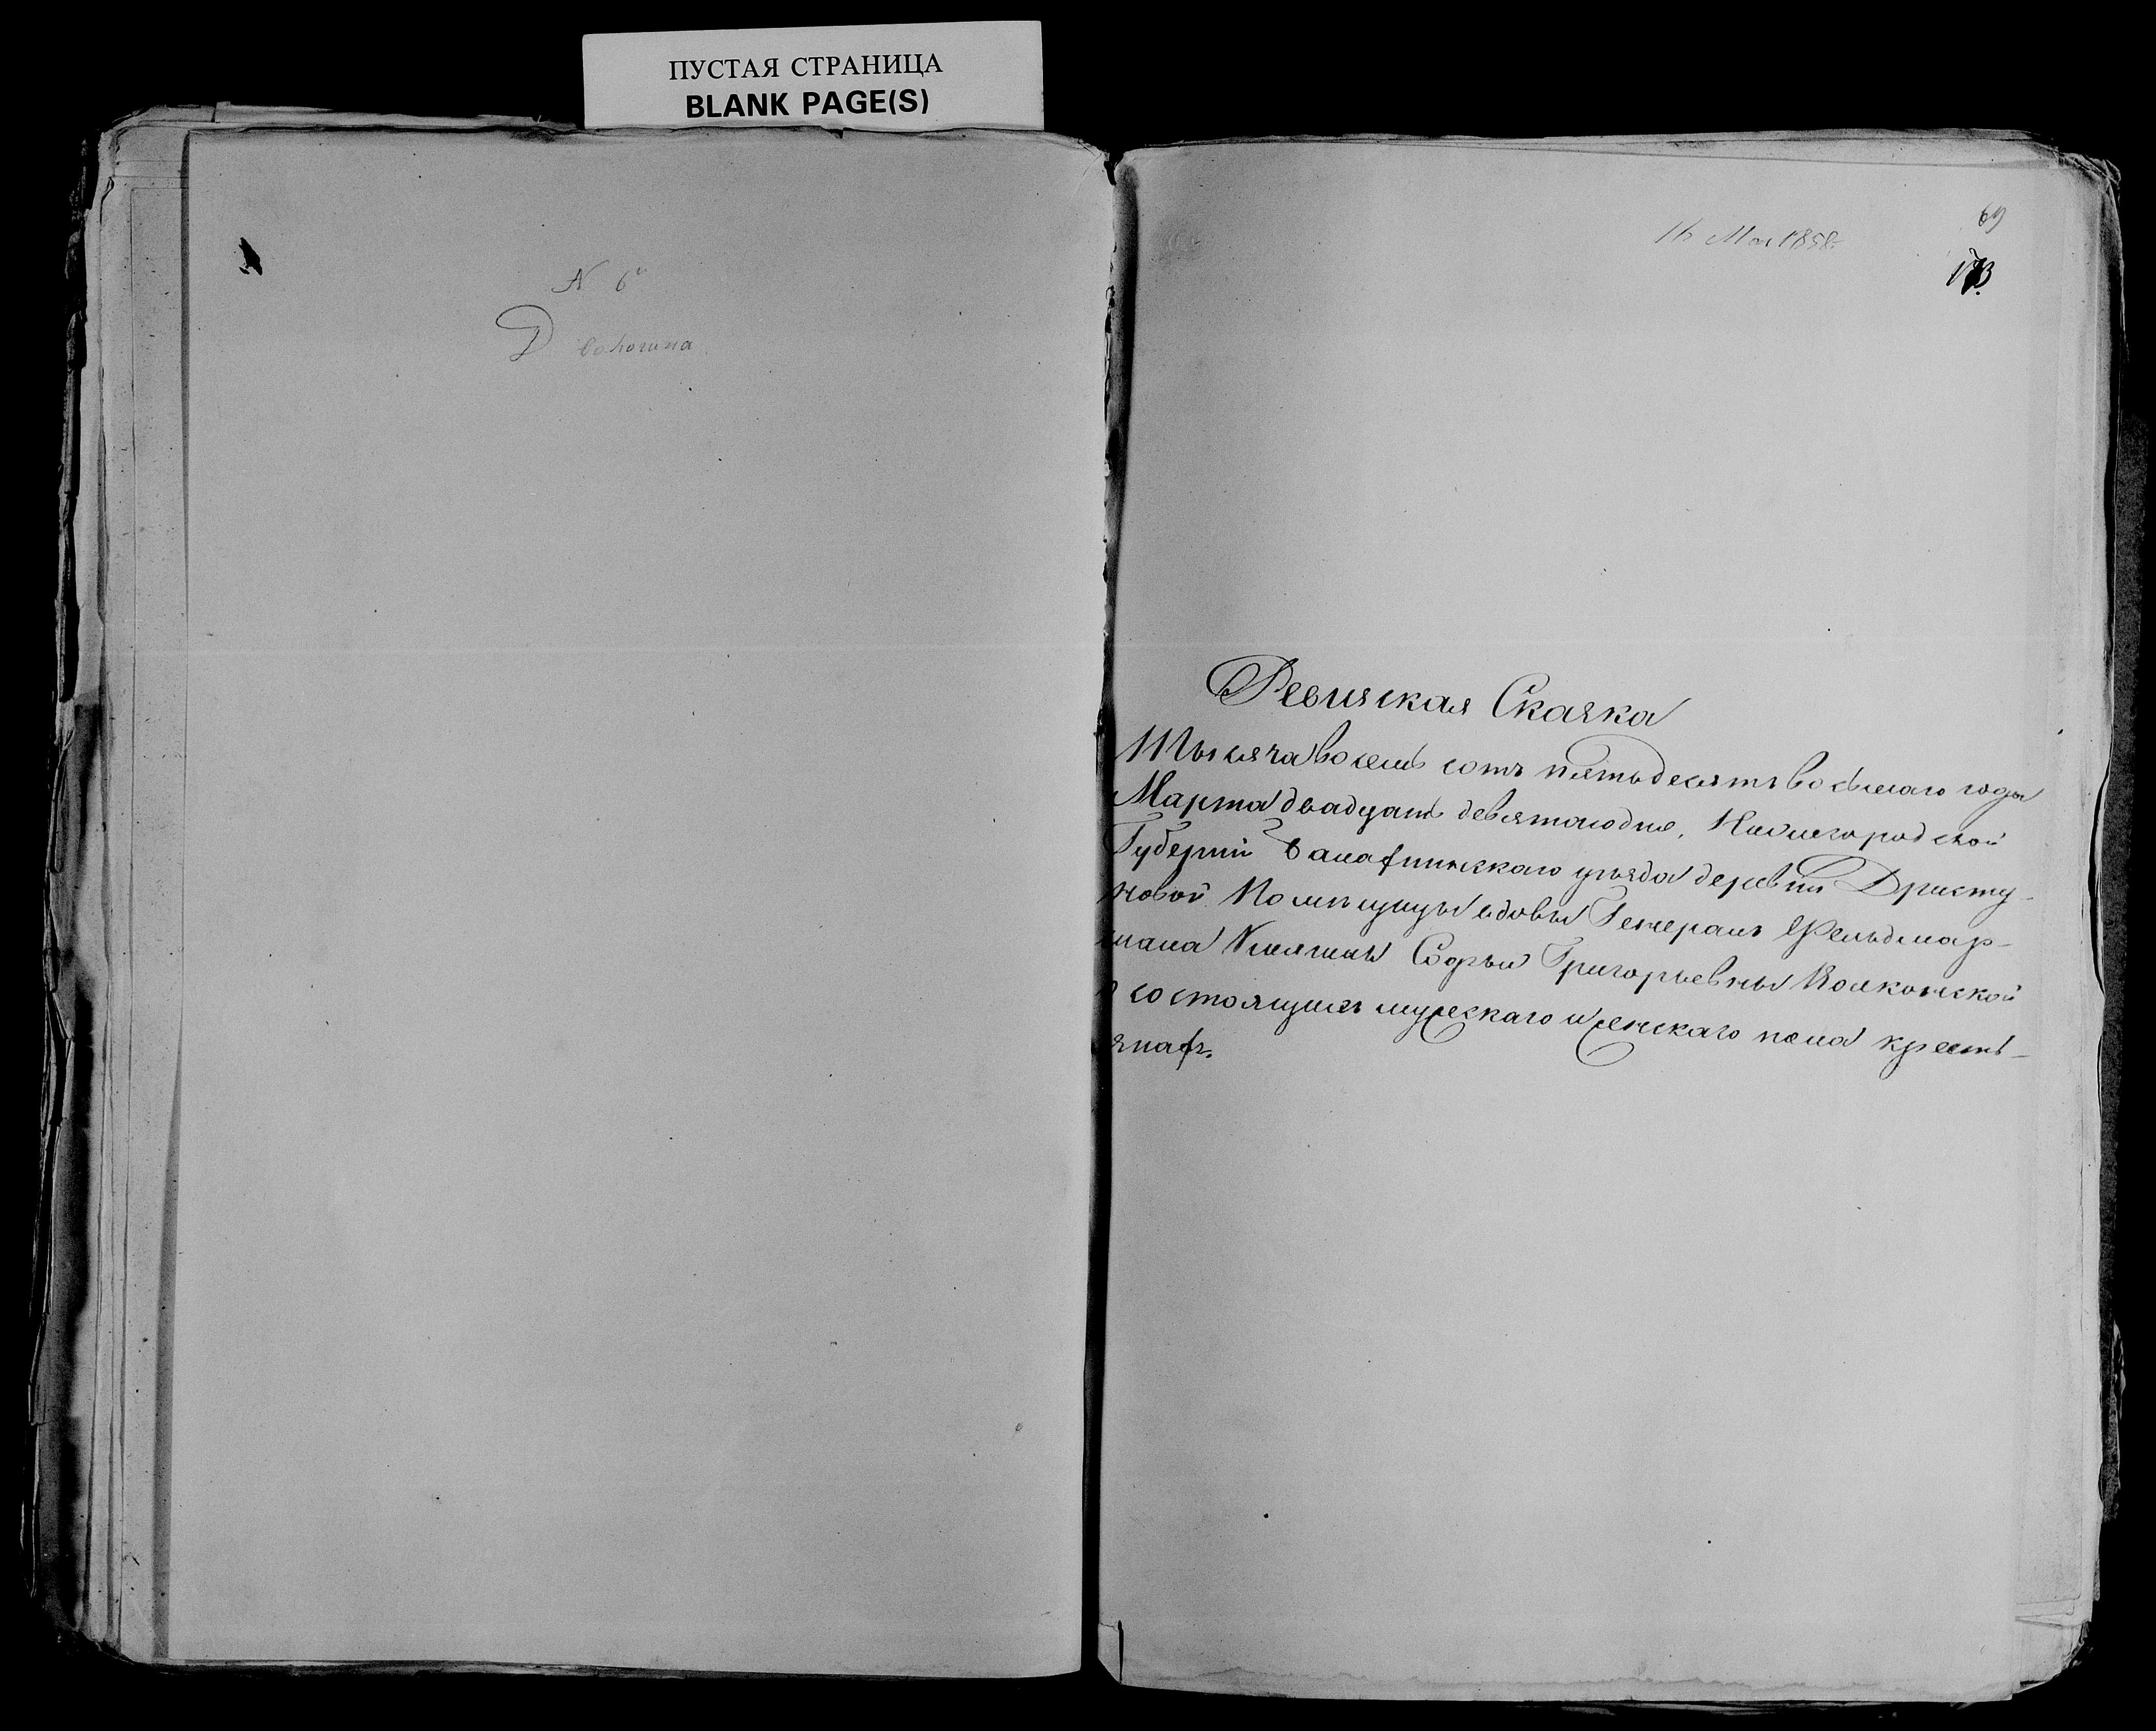 ПУСТАЯ СТРАНИЦА
BLANK PAGE(S)
N 6й
Д
16 Мая 1858.
69
Ревизская Сказка
Тысяча восемь сотъ пятьдесятъ восьмаго года
Марта двадцать девятаго дня, Нижегородской
Губерніи Балахнинскаго уѣзда деревни Дристу-
новой Помѣщицы вдовы Генералъ Фельдмар-
шала Княгини Софьи Григорьевны Волконской
о состоящихъ мужескаго и женскаго пола кресть-
янахъ.